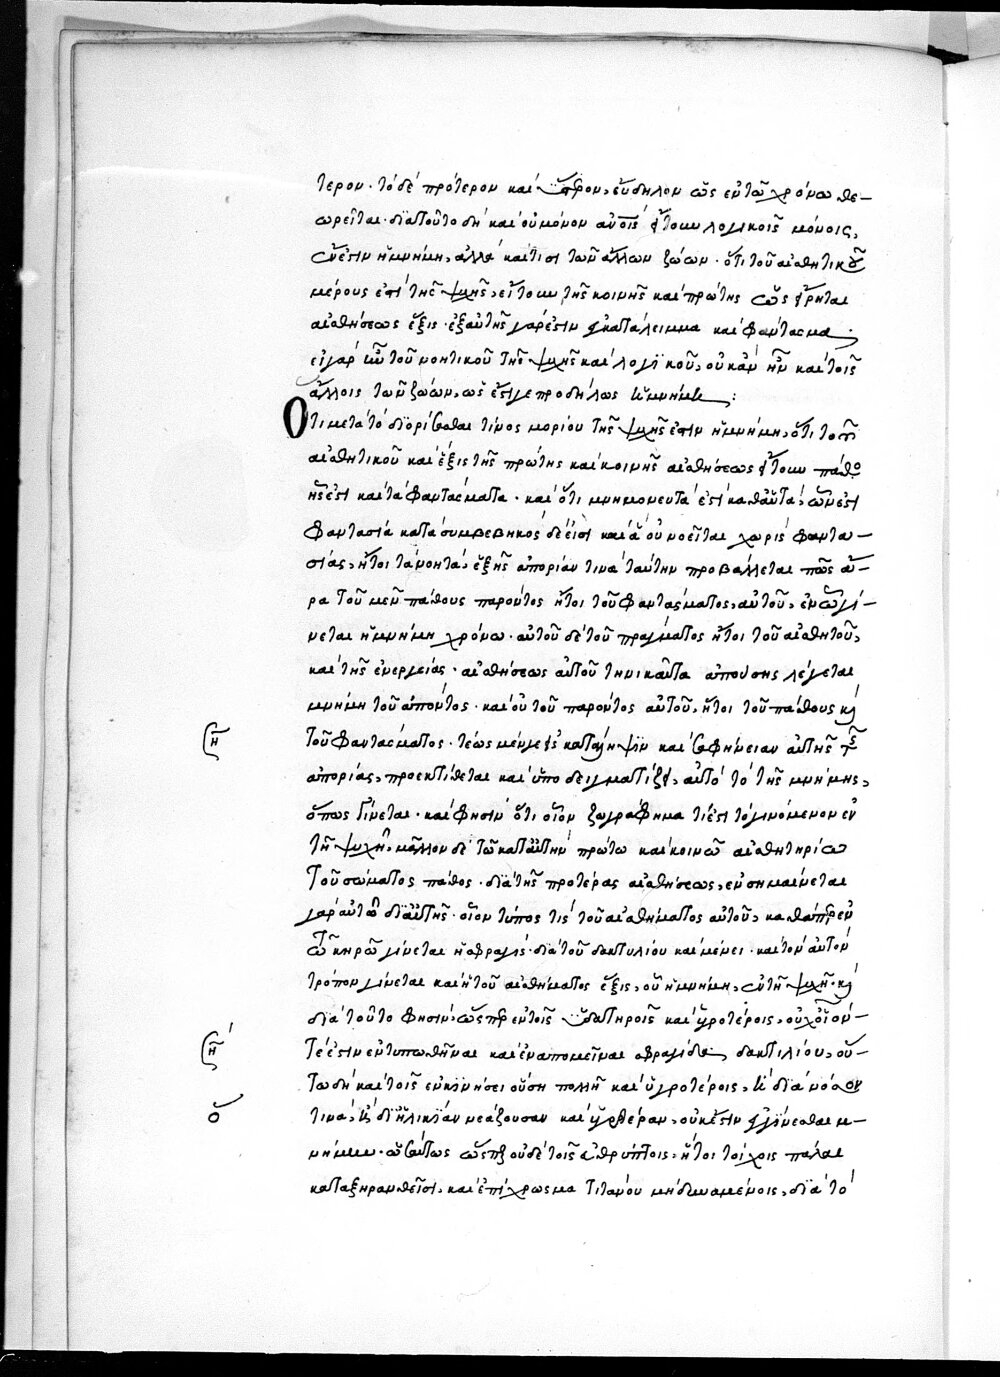 τερον· τὸ δὲ πρότερον καὶ ὕστερον, εὔδηλον ὡς ἐν τῷ χρόνῳ θε-
ωρεῖται· διὰ τοῦτο δὴ καὶ οὐ μόνον ἀνοις ἤτουν λογικοῖς μόνοις,
ἔνεστιν ἡ μνήμη, ἀλλὰ καὶ τισὶ τῶν ἄλλων ζώων· ὅτι τοῦ αἰσθητικοῦ
μέρους ἐστὶ τῆς ψυχῆς, εἴτουν τῆς κοινῆς καὶ πρώτης ὡς εἴρηται
αἰσθήσεως ἕξις· ἐξ αὐτῆς γάρ ἐστιν ἐγκατάλειμμα καὶ φάντασμα·
εἰ γὰρ ἦν τοῦ νοητικοῦ τῆς ψυχῆς καὶ λογικοῦ, οὐκ ἂν ἦν καὶ τοῖς
ἄλλοις τῶν ζώων, ὡς ἔστι γε προδήλως ἡ μνήμη:
Ὅτι μετὰ τὸ διορίσασθαι τίνος μορίου τῆς ψυχῆς ἐστιν ἡ μνήμη, ὅτι τοῦ
αἰσθητικοῦ καὶ ἕξις τῆς πρώτης καὶ κοινῆς αἰσθήσεως ἤτουν πάθος
ἧς ἐστι καὶ τὰ φαντάσματα· καὶ ὅτι μνημονευτά ἐστι καθ' αὑτά, ὧν ἐστι
φαντασία κατὰ συμβεβηκὸς δέ εἰσι καὶ ἃ οὐ νοεῖται χωρὶς φαντα-
σίας, ἤτοι τὰ νοητά, ἑξῆς ἀπορίαν τινὰ ταύτην προβάλλεται πῶς ἄ-
ρα τοῦ μὲν πάθους παρόντος ἤτοι τοῦ φαντάσματος, αὐτοῦ, ἐν ᾧ γί-
νεται ἡ μνήμη χρόνῳ· αὐτοῦ δὲ τοῦ πράγματος ἤτοι τοῦ αἰσθητοῦ,
καὶ τῆς ἐνεργείας· αἰσθήσεως αὐτοῦ τηνικαῦτα ἀπούσης λέγεται
μνήμη τοῦ ἀπόντος· καὶ οὐ τοῦ παρόντος αὐτοῦ, ἤτοι τοῦ πάθους καὶ
τοῦ φαντάσματος· τέως μέν γε εἰς κατάληψιν καὶ σαφήνειαν αὐτῆς τῆς
ἀπορίας, προεκτίθεται καὶ ὑποδειγματίζει, αὐτὸ τὸ τῆς μνήμης,
ὅπως γίνεται· καὶ φησὶν ὅτι οἷον ζωγράφημα τί ἐστι τὸ γινόμενον ἐν
τῇ ψυχῇ, μᾶλλον δὲ τῷ κατ' αὐτὴν πρώτῳ καὶ κοινῷ αἰσθητηρίῳ
τοῦ σώματος πάθος· διὰ τῆς προτέρας αἰσθήσεως, ἐνσημαίνεται
γὰρ αὐτῷ δι' αὐτῆς· οἷον τύπος τις τοῦ αἰσθήματος αὐτοῦ, καθάπερ ἐν
τῷ κηρῷ γίνεται ἡ σφραγὶς διὰ τοῦ δακτυλίου καὶ μένει· καὶ τὸν αὐτὸν
τρόπον γίνεται καὶ ἡ τοῦ αἰσθήματος ἕξις, οὖ ἡ μνήμη, ἐν τῇ ψυχῇ· καὶ
διὰ τοῦτο φησίν, ὥσπερ ἐν τοῖς ὑδατηροῖς καὶ ὑγροτέροις, οὐχ οἷόν-
τέ ἐστιν ἐντυπωθῆναι καὶ ἐναπομεῖναι σφραγῖδα δακτυλίου, οὕ-
τω δὴ καὶ τοῖς ἐν κινήσει οὖσι πολλῇ καὶ ὑγροτέροις, ἢ διὰ νόσον
τινά, ἢ δι' ἡλικίαν νεάζουσαν καὶ ὑγροτέραν, οὐκ ἔστιν ἐγγίνεσθαι μ-
νήμην· ὡσαύτως ὥσπερ οὐδὲ τοῖς ἐνθρύπτοις, ἤτοι τοίχοις πάλαι
καταξηρανθεῖσι, καὶ ἐπίχρωσμα τιτάνου μὴ δυναμένοις, διὰ τὸ